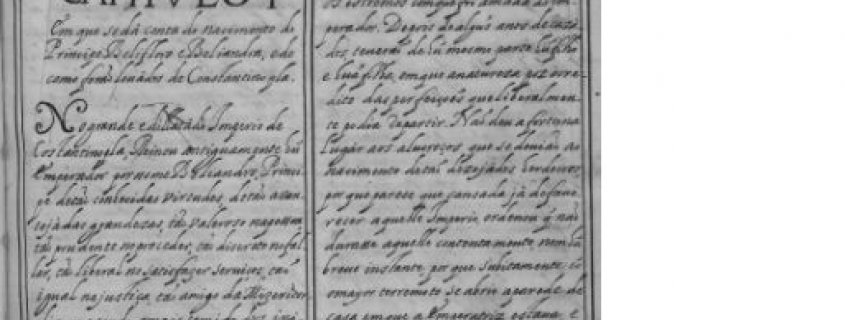 CAPITVLO I
Em que se dá conta do nacimento do
Principe Belifloro e Beliandra, e de
como forão levados de Constantinopla.
No grande e dilatado Imperio de
Costantinopla, Reinou antiguamente hũ
Emperador por nome Beliandro, Princi-
pe de tão conhecidas virtudes, de tão avan-
tejadas grandezas, tão valeroso
tão prudente no proceder, tão discreto no fal-
lar, tão liberal no satisfazer serviços, tão
igual na justiça, tão amigo da Mizericor
os estremos com que foi amada do Em-
perador. Depois de algus anos de caza-
dos, tiverão de hũ mesmo parto hũ filho
e hũa filha, em que a natureza pos o cre-
dito das perfeiçoẽs que liberalmen-
te podia repartir. Não deu a fortuna
lugar aos alvoroços que se devião ao
nacimento de tão dezejados herdeiros,
por que parece que cansada já de favo-
recer aquelle Imperio, ordenou q̃ não
durase aquelle contentamento, nem hũ
breve instante, por que subitamente, cõ
o mayor terremoto se abrio a parede da
casa em que a Emperatriz estava, e